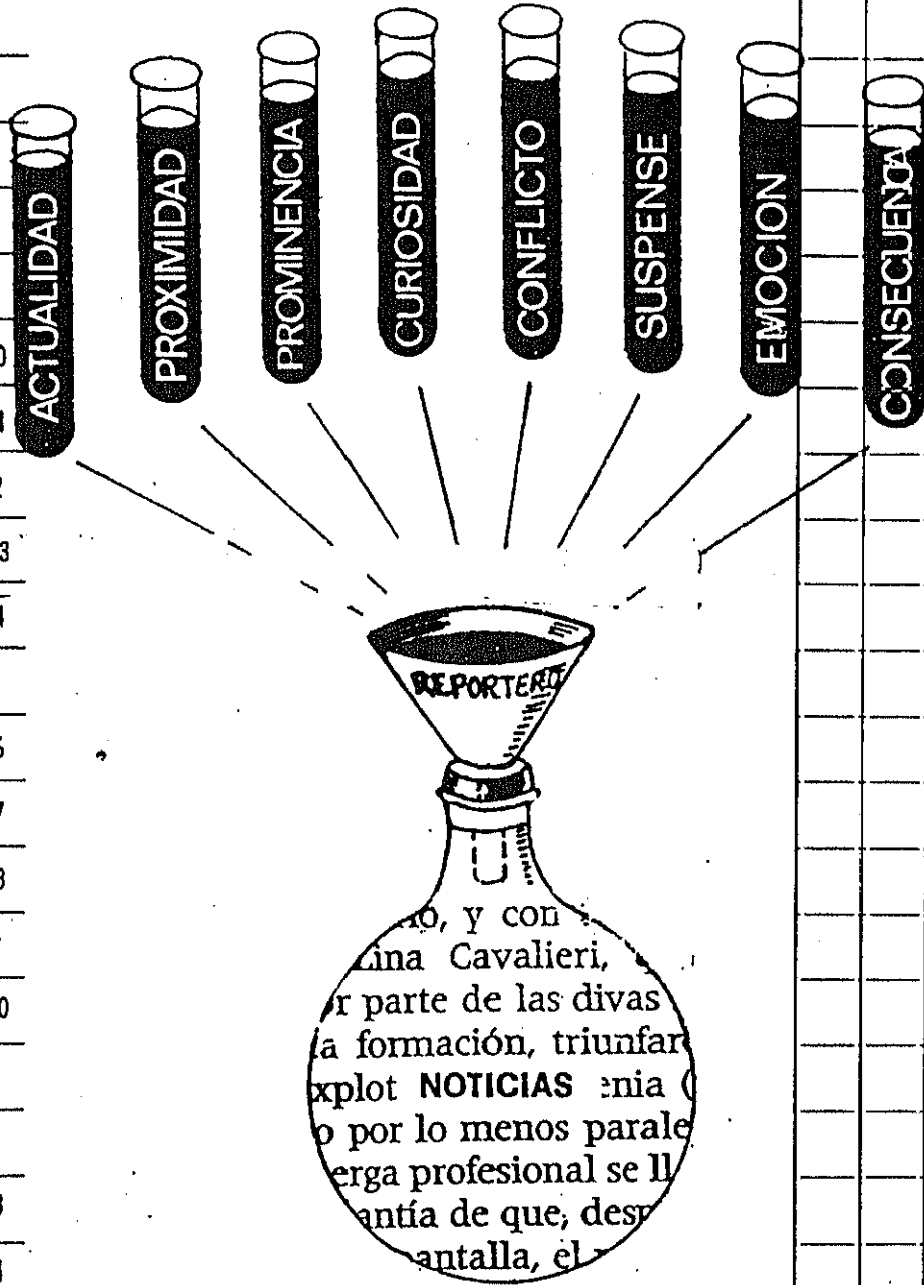 ACTUALIDAD
PROXIMIDAD
PROMINENCIA
CURIOSIDAD
CONFLICTO
SUSPENSE
EMOCION
CONSECUENCIA
REPORTERO
y con
Lina Cavalieri,
parte de las divas
formación, triunfar
xplot NOTICIAS enia
o por lo menos parale
erga profesional se ll
antía de que, desp
pantalla, el